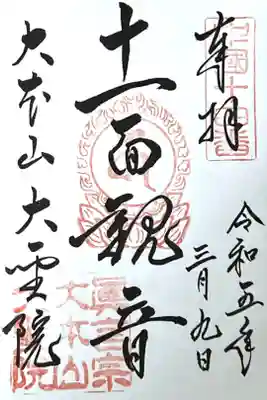 奉拝
中國十四番
令和五年
三月九日
十一面観音
大本山大聖院
眞言宗
大本山